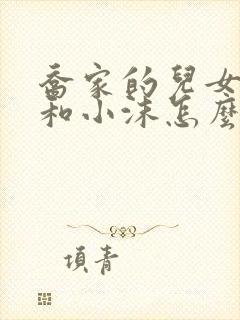 喬家的兒女
和小沫怎麼
項青